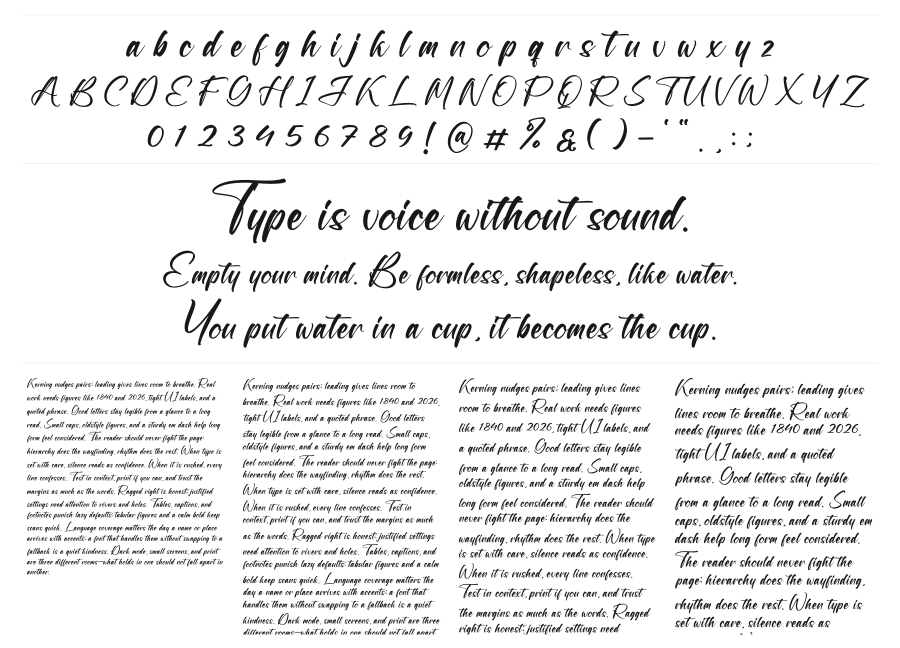 a b c d e f g h i j k l m n o p q r s t u v w x y z
A B C D E F G H I J K L M N O P Q R S T U V W X Y Z
0 1 2 3 4 5 6 7 8 9 ! @ # % & ( ) – ‘ “ . , : ;
Type is voice without sound.
Empty your mind. Be formless, shapeless, like water.
You put water in a cup, it becomes the cup.
Kerning nudges pairs; leading gives lines room to breathe. Real
work needs figures like 1840 and 2026, tight UI labels, and a
quoted phrase. Good letters stay legible from a glance to a long
read. Small caps, oldstyle figures, and a sturdy em dash help long
form feel considered. The reader should never fight the page:
hierarchy does the wayfinding, rhythm does the rest. When type is
set with care, silence reads as confidence. When it is rushed, every
line confesses. Test in context, print if you can, and trust the
margins as much as the words. Ragged right is honest; justified
settings need attention to rivers and holes. Tables, captions, and
footnotes punish lazy defaults: tabular figures and a calm bold keep
scans quick. Language coverage matters the day a name or place
arrives with accents: a font that handles them without swapping to a
fallback is a quiet kindness. Dark mode, small screens, and print
are three different rooms—what holds in one should not fall apart in
another.
Kerning nudges pairs; leading gives lines room to
breathe. Real work needs figures like 1840 and 2026,
tight UI labels, and a quoted phrase. Good letters
stay legible from a glance to a long read. Small caps,
oldstyle figures, and a sturdy em dash help long form
feel considered. The reader should never fight the page:
hierarchy does the wayfinding, rhythm does the rest.
When type is set with care, silence reads as confidence.
When it is rushed, every line confesses. Test in
context, print if you can, and trust the margins as much
as the words. Ragged right is honest; justified settings
need attention to rivers and holes. Tables, captions, and
footnotes punish lazy defaults: tabular figures and a calm
bold keep scans quick. Language coverage matters the
day a name or place arrives with accents: a font that
handles them without swapping to a fallback is a quiet
kindness. Dark mode, small screens, and print are three
different rooms—what holds in one should not fall apart
Kerning nudges pairs; leading gives lines
room to breathe. Real work needs figures
like 1840 and 2026, tight UI labels, and
a quoted phrase. Good letters stay legible
from a glance to a long read. Small caps,
oldstyle figures, and a sturdy em dash help
long form feel considered. The reader should
never fight the page: hierarchy does the
wayfinding, rhythm does the rest. When type
is set with care, silence reads as confidence.
When it is rushed, every line confesses.
Test in context, print if you can, and trust
the margins as much as the words. Ragged
right is honest; justified settings need
Kerning nudges pairs; leading gives
lines room to breathe. Real work
needs figures like 1840 and 2026,
tight UI labels, and a quoted
phrase. Good letters stay legible
from a glance to a long read. Small
caps, oldstyle figures, and a sturdy em
dash help long form feel considered.
The reader should never fight the
page: hierarchy does the wayfinding,
rhythm does the rest. When type is
set with care, silence reads as